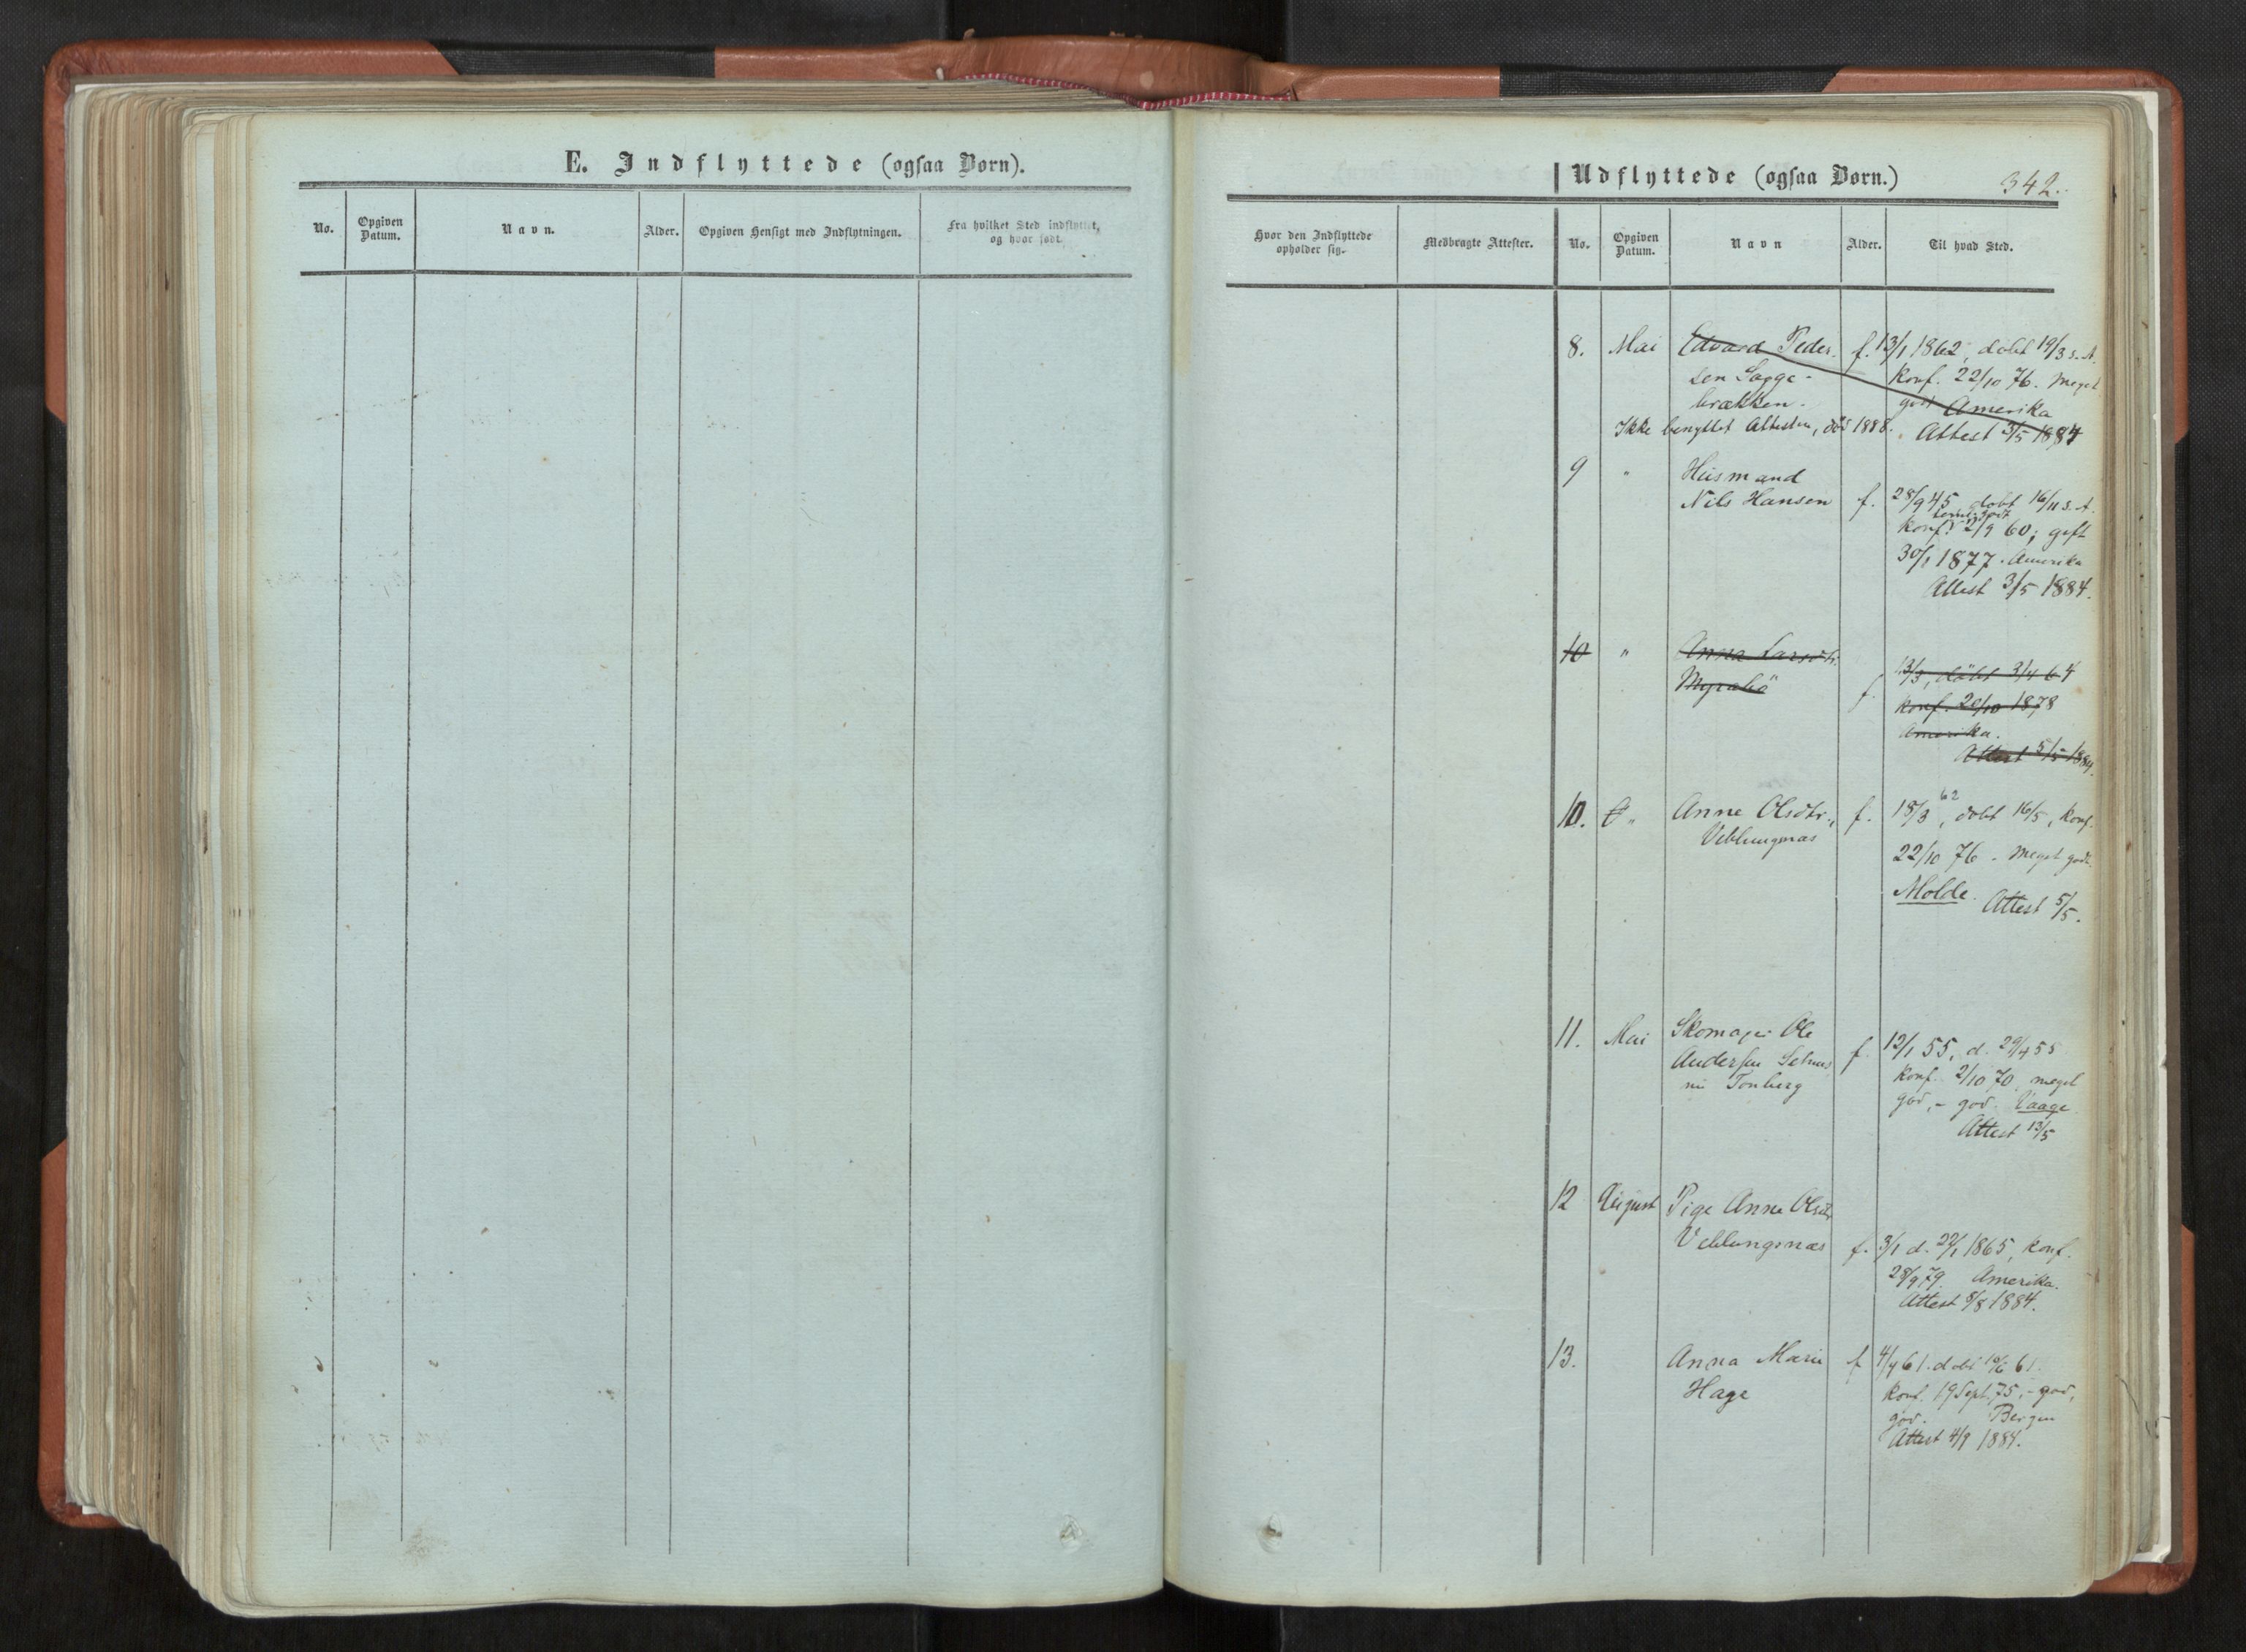 E. Indflyttede (ogsaa Børn).
No.
Opgiven Datum.
Navn.
Alder.
Opgiven Hensigt med Indflytningen.
Fra hvilket Sted indflyttet,
og hvor født.
Udflyttede (ogsaa Børn.)
342.
Hvor den Indflyttede
opholder sig.
Medbragte Attester.
No.
Opgiven Datum.
Navn
Alder.
Til hvad Sted.
8. Mai Edvard Peder- f. 13/1 1862, döbt 19/3 s. A.
sen Sogge- Konf. 22/10 76. Meget
brækken. godt Amerika
Ikke benyttet Attesten, död 1888. Attest 3/5 1884
9 " Husmand
Nils Hansen f. 28/9 45, döbt 16/11 s. A.
Konf. 2/9 60; gift
30/1 1877. Amerika
Attest 3/5 1884.
10 " Anna Larsdtr.
Myrabö f. 13/3, döbt 3/4 64
Konf. 20/10 1878
Amerika.
Attest 5/5 1884.
10. " Anne Olsdtr., f. 18/3 62, döbt 16/5, Konf.
Veblungnæs
22/10 76. Meget godt.
Molde. Attest 5/5.
11. Mai Skomager Ole
Andersen f. 12/1 55, d. 29/4 55
Tonberg Konf. 2/10 70, meget
god, - god. Vaage
Attest 13/5
12 August Pige Anna Olsdtr
Veblungsnæs f. 3/1 d. 22/1 1865, Konf.
28/9 79. Amerika.
Attest 8/8 1884.
13. Anna Marie f 4/4 61. döbt 61.
Hage Konf. 19 Sept. 75, - god,
god. Bergen
Attest 4/9 1884.